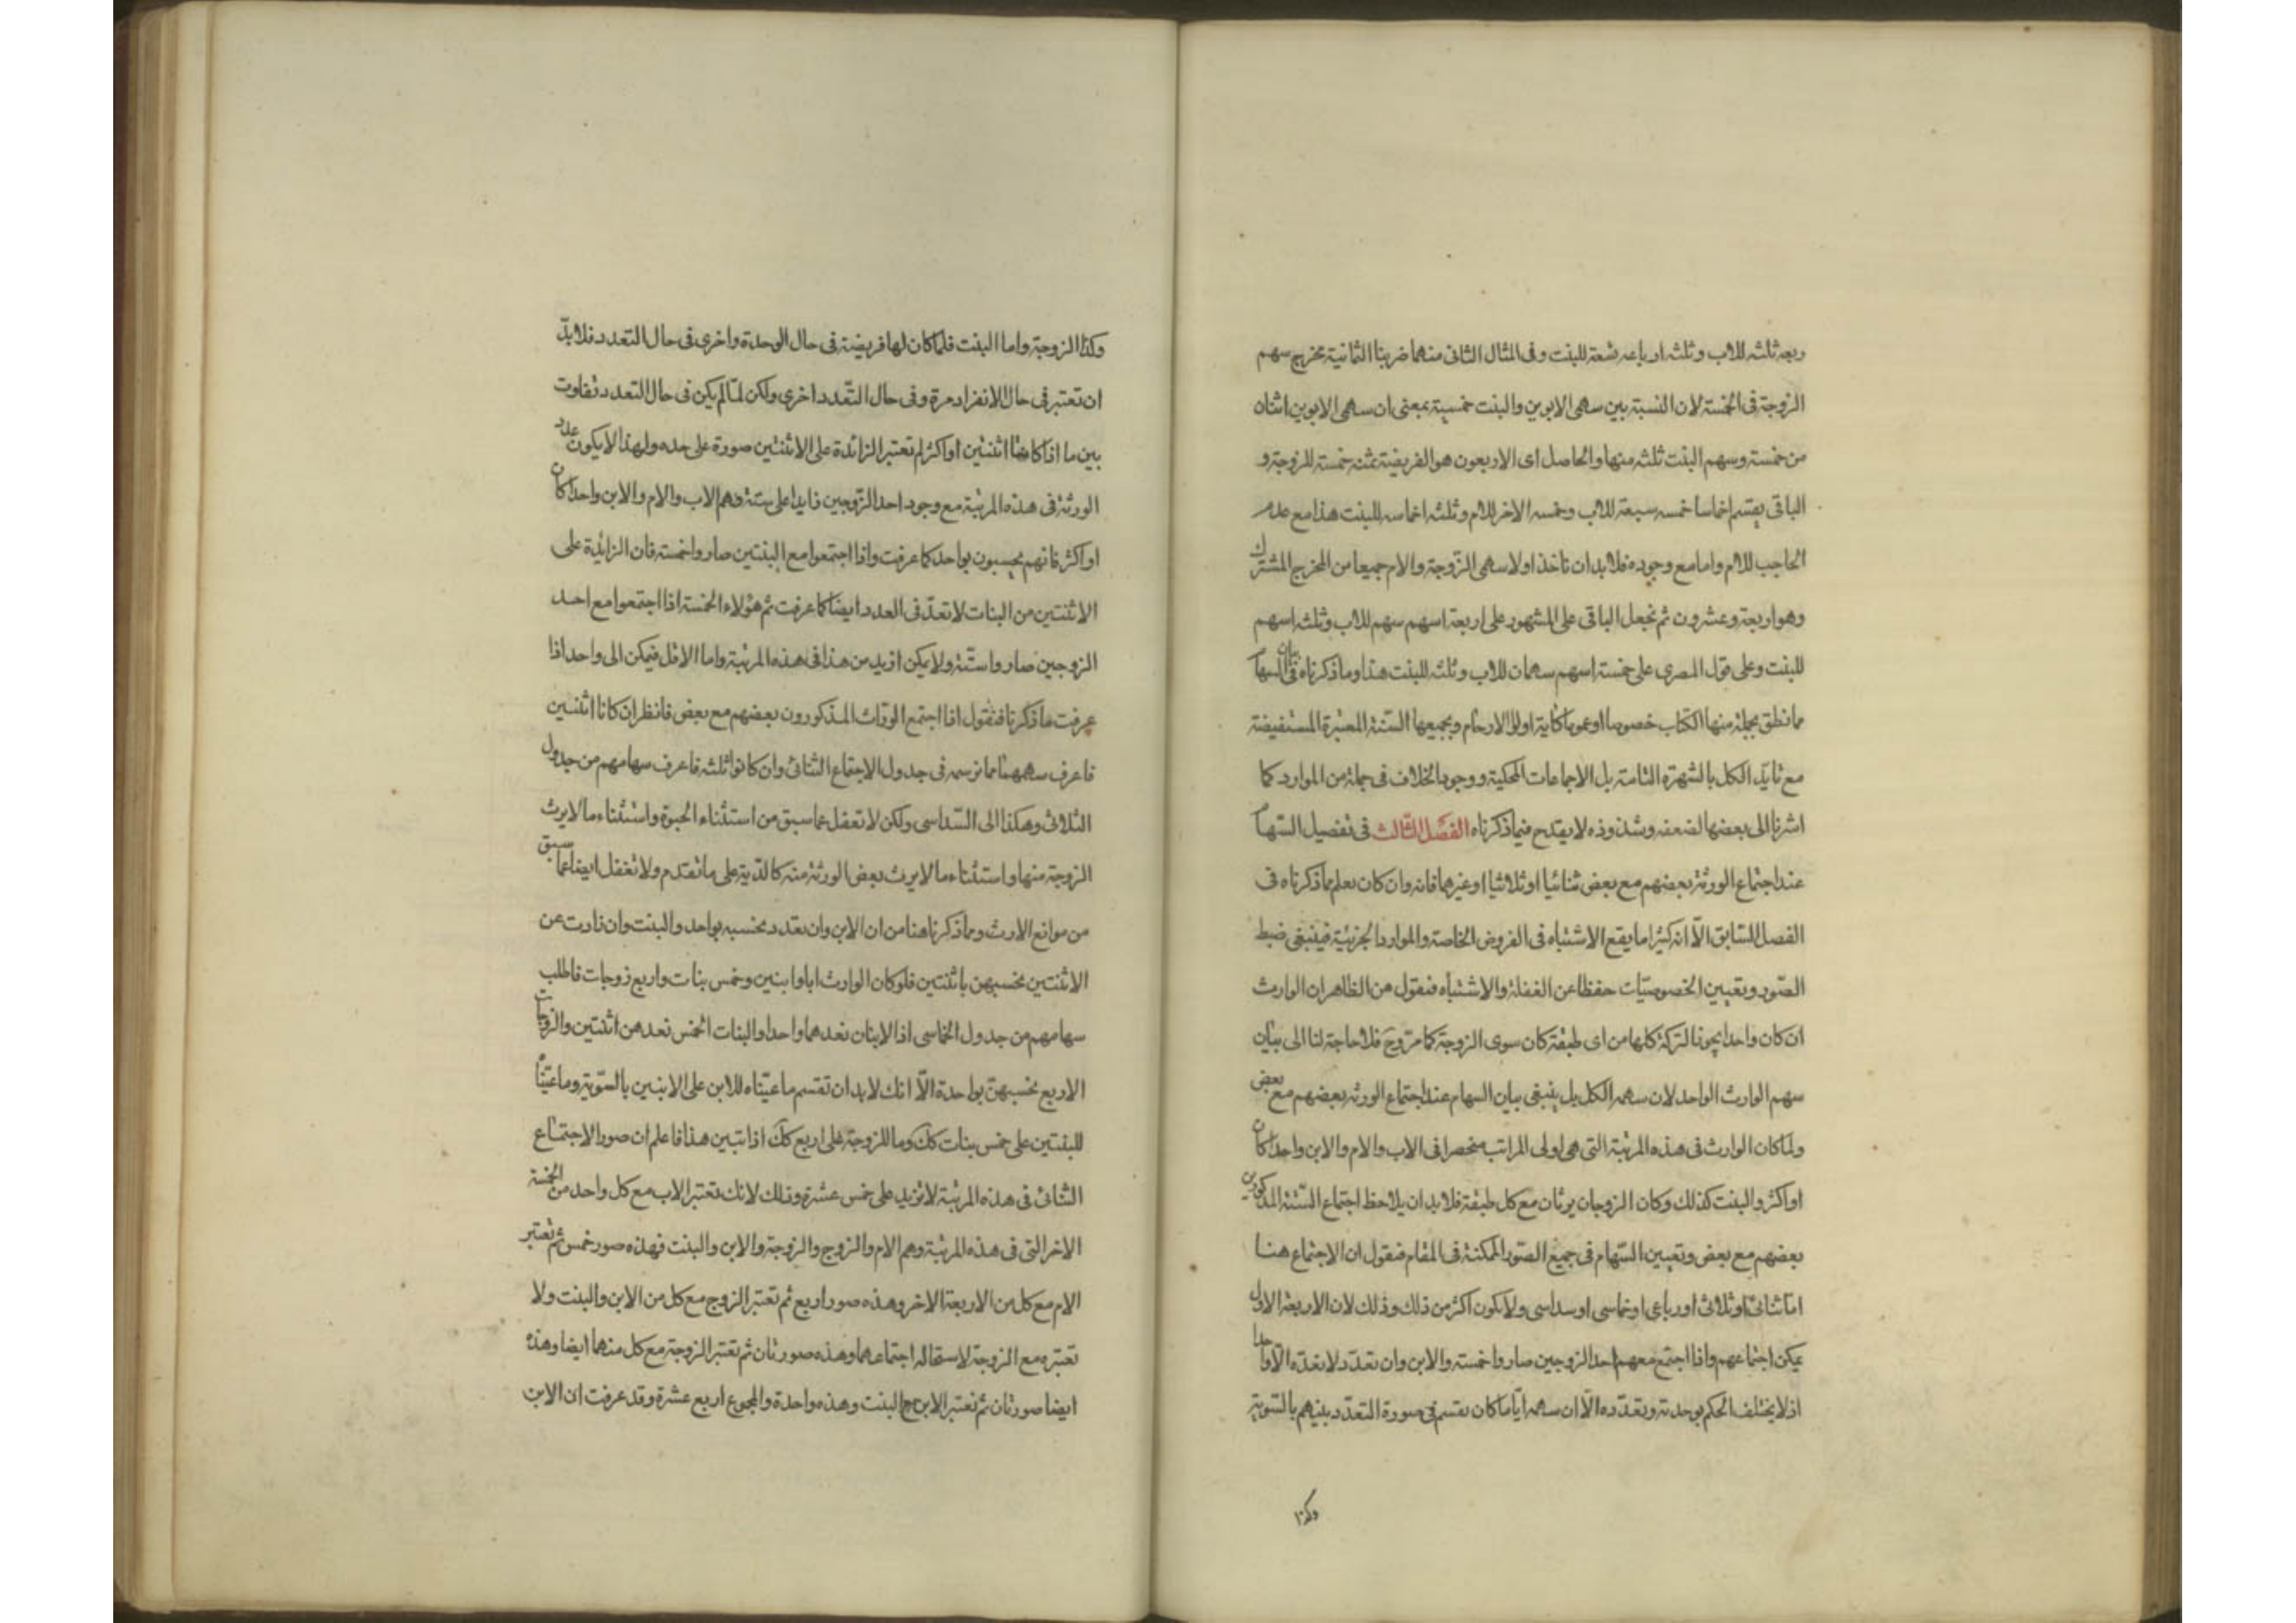 ربعه ثلثه للاب وثلثه ارباعه تسعة للبنت وفى المثال الثانى منهما ضربنا الثمانية مخرج سهم
الزوجة فى الخمسة لان النسبة بين سهمى الابوين والبنت خمسية بمعنى ان سهمى الابوين اثنان
من خمسة وسهم البنت ثلثه منها والحاصل اى الاربعون هو الفريضة ثمنه خمسة للزوجة و
الباقى يقسم اخماسا خمسه سبعة للاب وخمسه الاخر للام وثلثه اخماسه للبنت هذا مع عدم
الحاجب للام واما مع وجوده فلابد ان تاخذ اولا سهمى الزوجة والام جميعا من المخرج المشترك
وهو اربعة وعشرون ثم نجعل الباقى على المشهور على اربعة اسهم سهم للاب وثلثه اسهم
للبنت وعلى قول المصرى على خمسة اسهم سهمان للاب وثلثه للبنت هذا وما ذكرناه فى بيان السهام
مما نطق بجملة منها الكتاب خصوصا او عموما كاية اولوا الارحام وبجميعها السنة المعتبرة المستفيضة
مع تايّد الكل بالشهرة التامة بل الاجماعات المحكية ووجود الخلاف فى جملة من الموارد كما
اشرنا الى بعضها لضعفه وشذوذه لا يقدح فيما ذكرناه الفصل الثالث فى تفصيل السهام
عند اجتماع الورثة بعضهم مع بعض ثنائيا او ثلاثيا او غيرهما فانه وان كان يعلم مما ذكرناه فى
الفصل السابق الّا انه كثيرا ما يقع الاشتباه فى الفروض الخاصة والموارد الجزئية فينبغى ضبط
الصور وتعيين الخصوصيّات حفظا عن الغفلة والاشتباه فنقول من الظاهر ان الوارث
ان كان واحدا يحوز التركة كلها من اى طبقة كان سوى الزوجة كما مرّ وح فلا حاجة لنا الى بيان
سهم الوارث الواحد لان سهمه الكل بل ينبغى بيان السهام عند اجتماع الورثه بعضهم مع بعض
ولما كان الوارث فى هذه المرتبة التى هى اولى المراتب منحصرا فى الاب والام والابن واحدا كان
او اكثر والبنت كذلك وكان الزوجان يرثان مع كل طبقة فلابد ان يلاحظ اجتماع الستة المذكورين
بعضهم مع بعض وتعيين السّهام فى جميع الصّور الممكنة فى المقام فنقول ان الاجتماع هنا
امّا ثنائى او ثلاثى او رباعى او خماسى او سداسى ولا يكون اكثر من ذلك وذلك لان الاربعة الاول
يمكن اجتماعهم واذا اجتمع معهم احد الزوجين صاروا خمسة والابن وان تعدّد لا نعدّه الّا واحدا
اذ لا يختلف الحكم بوحدته وتعدّده الّا ان سهمه ايّاما كان يقسم فى صورة التعدّد بينهم بالسّوية
وكذا
وكذا الزوجة واما البنت فلما كان لها فريضة فى حال الوحدة واخرى فى حال التعدد فلابدّ
ان تعتبر فى حال الانفراد مرة وفى حال التّعدد اخرى ولكن لمّا لم يكن فى حال التعدد تفاوت
بين ما اذا كانتا اثنتين او اكثر لم تعتبر الزائدة على الاثنتين صورة على حده ولهذا لا يكون عدد
الورثة فى هذه المرتبة مع وجود احد الزوجين زايدا على ستة وهم الاب والام والابن واحدا كان
او اكثر فانهم يحسبون بواحد كما عرفت واذا اجتمعوا مع البنتين صاروا خمسة فان الزائدة على
الاثنتين من البنات لا تعدّ فى العدد ايضا كما عرفت ثم هؤلاء الخمسة اذا اجتمعوا مع احد
الزوجين صاروا ستّة ولا يمكن ازيد من هذا فى هذه المرتبة واما الاقل فيمكن الى واحد اذا
عرفت ما ذكرنا فنقول اذا اجتمع الورّاث المذكورون بعضهم مع بعض فانظر ان كانا اثنين
فاعرف سهمهما مما نرسمه فى جدول الاجتماع الثنائى وان كانوا ثلثه فاعرف سهامهم من جدول
الثلاثى وهكذا الى السّداسى ولكن لا تغفل عما سبق من استثناء الحبوة واستثناء ما لا يرث
الزوجة منها واستثناء ما لا يرث بعض الورثة منه كالدّية على ما تقدم ولا تغفل ايضا عما سبق
من موانع الارث ومما ذكرنا هنا من ان الابن وان تعدد نحسبه بواحد والبنت وان زادت عن
الاثنتين نحسبهن باثنتين فلو كان الوارث ابا وابنين وخمس بنات واربع زوجات فاطلب
سهامهم من جدول الخماسى اذ الابنان نعدهما واحدا والبنات الخمس نعدهن اثنتين والزوجات
الاربع نحسبهنّ بواحدة الّا انك لابد ان تقسم ما عيّناه للابن على الابنين بالسّوية وما عيّناه
للبنتين على خمس بنات كك وما للزوجة على اربع كك اذا تبين هذا فاعلم ان صور الاجتماع
الثنائى فى هذه المرتبة لا تزيد على خمس عشرة وذلك لانك تعتبر الاب مع كل واحد من الخمسة
الاخر التى فى هذه المرتبة وهم الام والزوج والزوجة والابن والبنت فهذه صور خمس ثم تعتبر
الام مع كل من الاربعة الاخر وهذه صور اربع ثم تعتبر الزوج مع كل من الابن والبنت ولا
تعتبره مع الزوجة لاستحالة اجتماعهما وهذه صورتان ثم تعتبر الزوجة مع كل منهما ايضا وهذه
ايضا صورتان ثم تعتبر الابن مع البنت وهذه واحدة والمجموع اربع عشرة وقد عرفت ان الابن